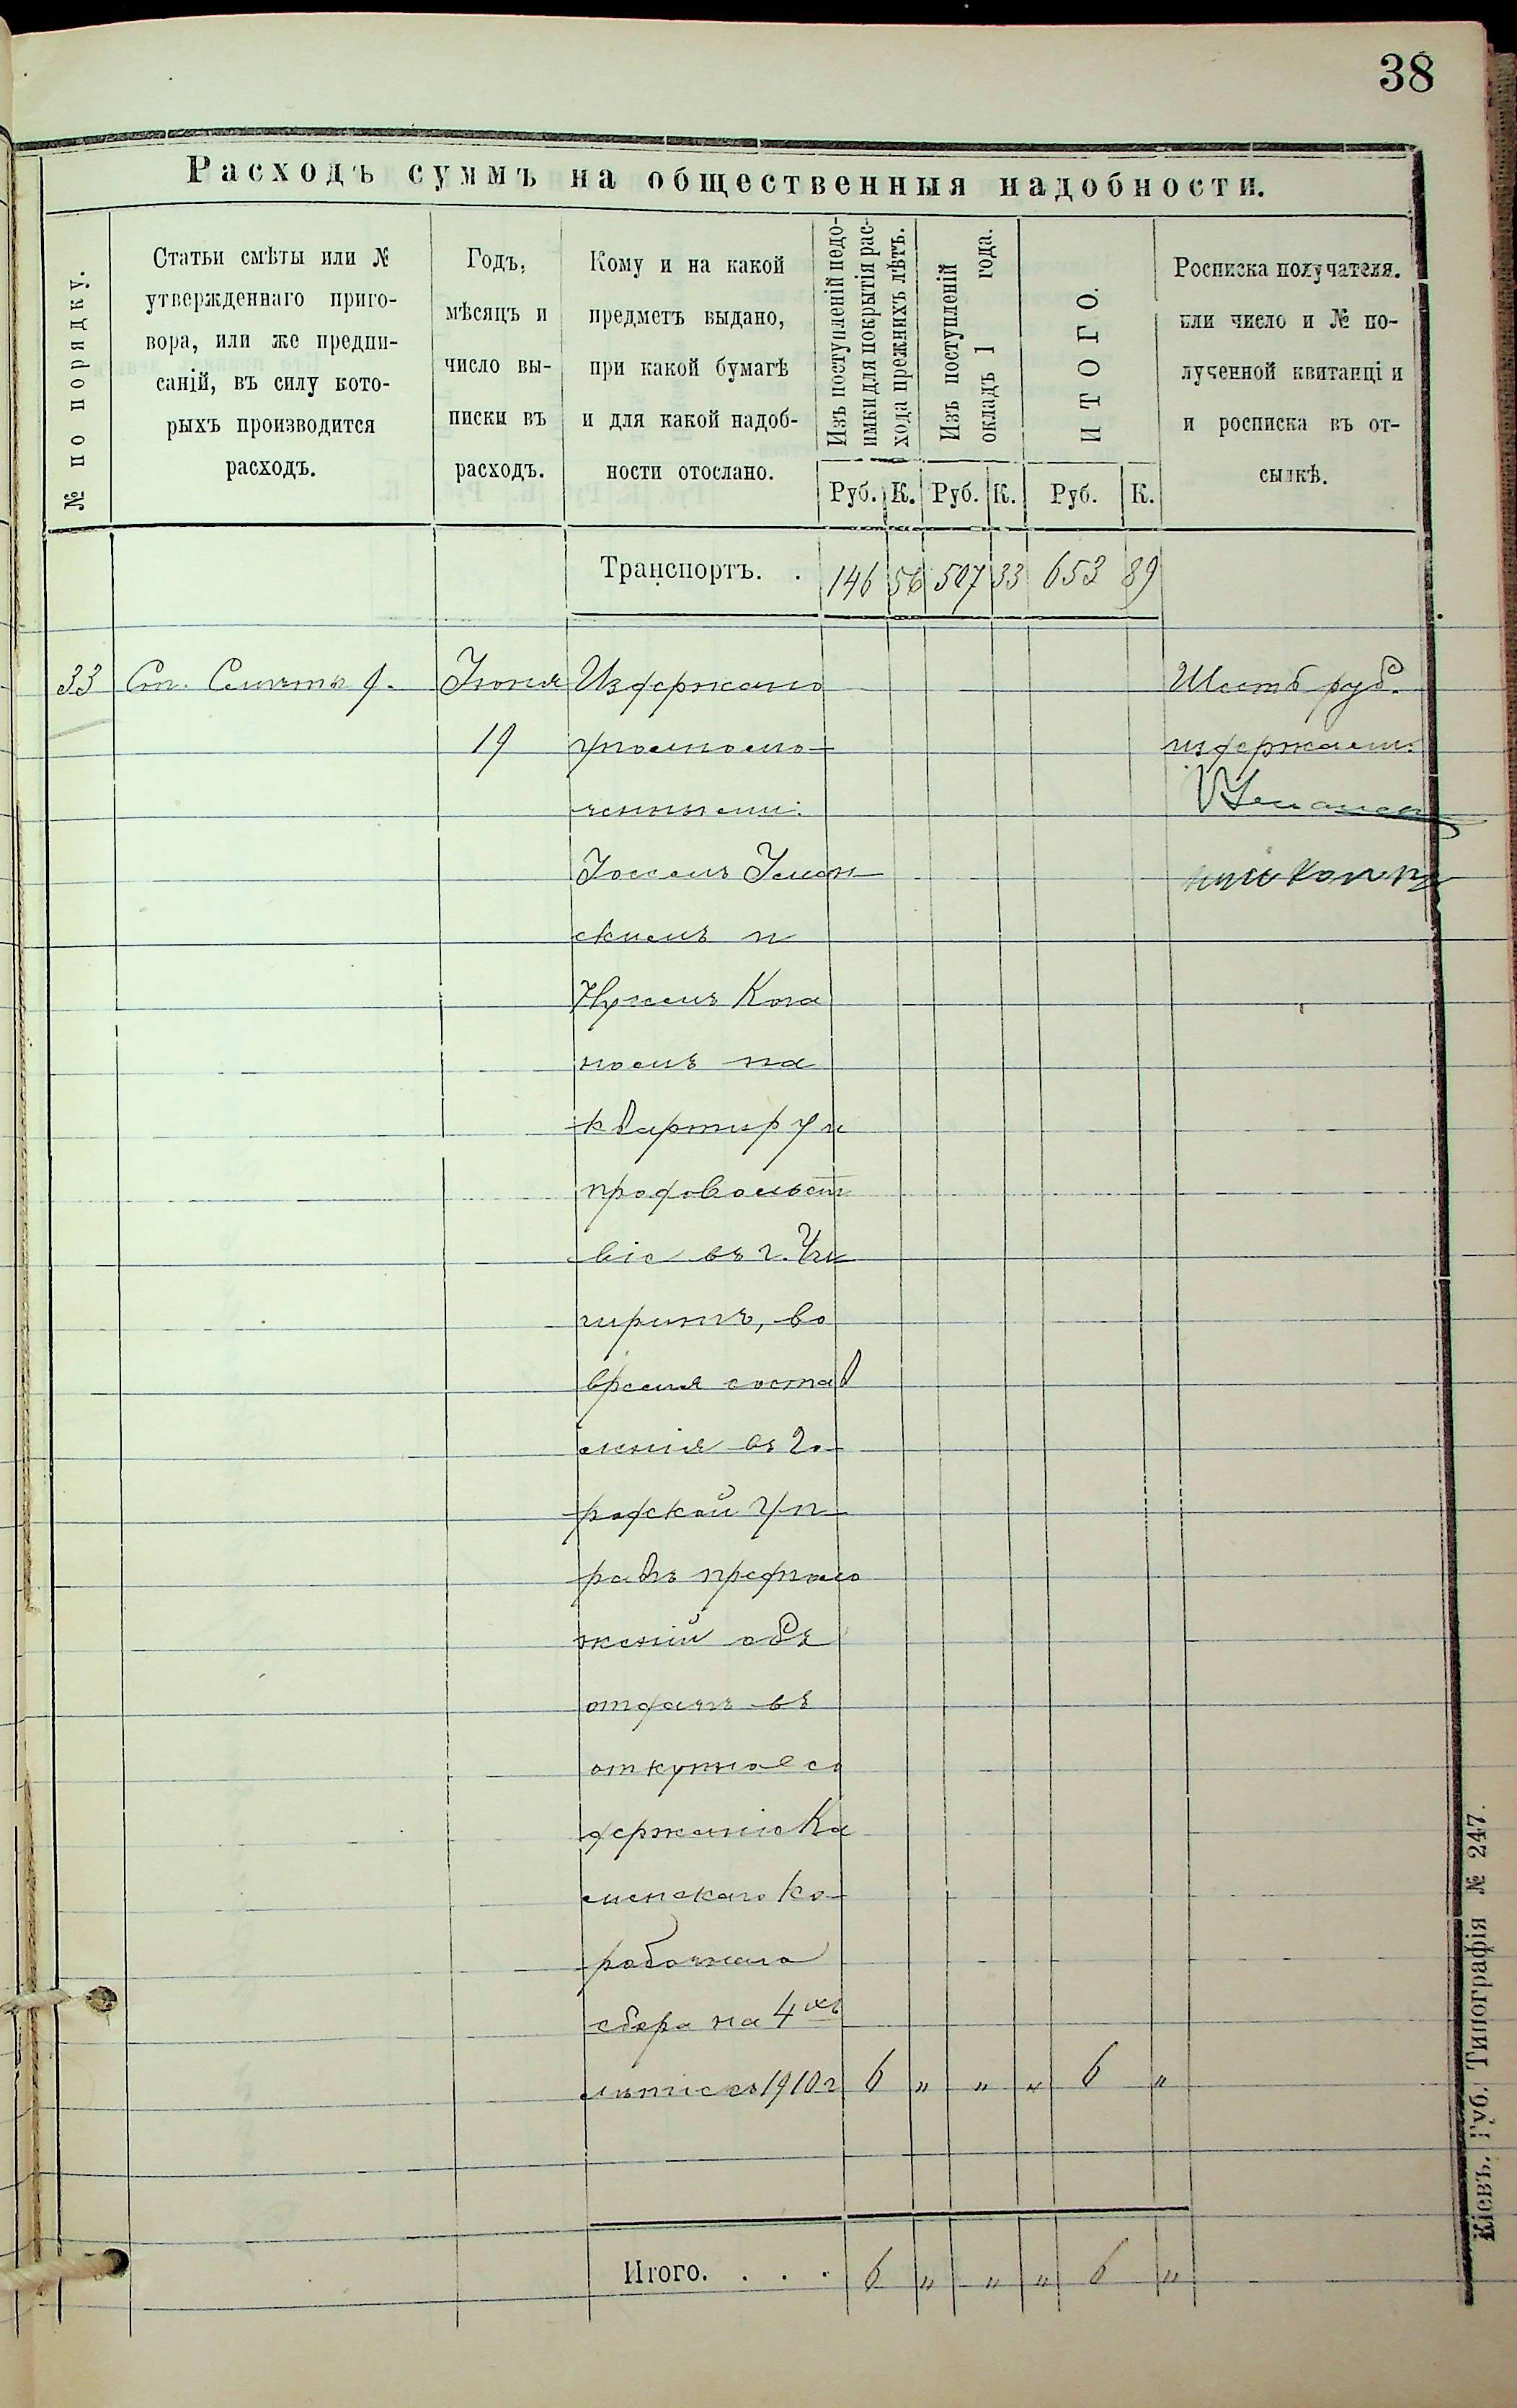 38
Расходъ суммъ на общественныя надобности.
№ по порядку.
Статьи смѣты или №
утвержденнаго приго-
вора, или же предпи-
саній, въ силу кото-
рыхъ производится
расходъ.
Годъ,
мѣсяцъ и
число вы-
писки въ
расходъ.
Кому и на какой
предметъ выдано,
при какой бумагѣ
и для какой надоб-
ности отослано.
Изъ поступленій недо-
имки для покрытія рас-
хода прежнихъ лѣтъ.
Изъ поступленій
окладъ 1 года.
ИТОГО.
Росписка получателя.
или число и № по-
лученной квитанціи
и росписка въ от-
сылкѣ.
Руб. К. Руб. К. Руб. К.
Транспортъ. . 146 56 507 33 653 89
33 Ст. Смѣты 9. Іюня Издержано Шесть руб.
19 уполномо- издержали:
ченными:
Іоссемъ Уман-
скимъ и
Нусемъ Кога
номъ на
квартиру и
продовольст
віе въ г. Чи
гиринѣ, во
время состав
ленія въ Го-
родской Уп-
равѣ предполо
женій объ
отдачѣ въ
откупное со
держаніе Ка
менскаго ко-
робочнаго
сбора на 4хъ
лѣтіе съ 1910 г 6 " " " 6 "
Итого. . . . 6 " " " 6 "
Кіевъ. Губ. Типографія № 247.